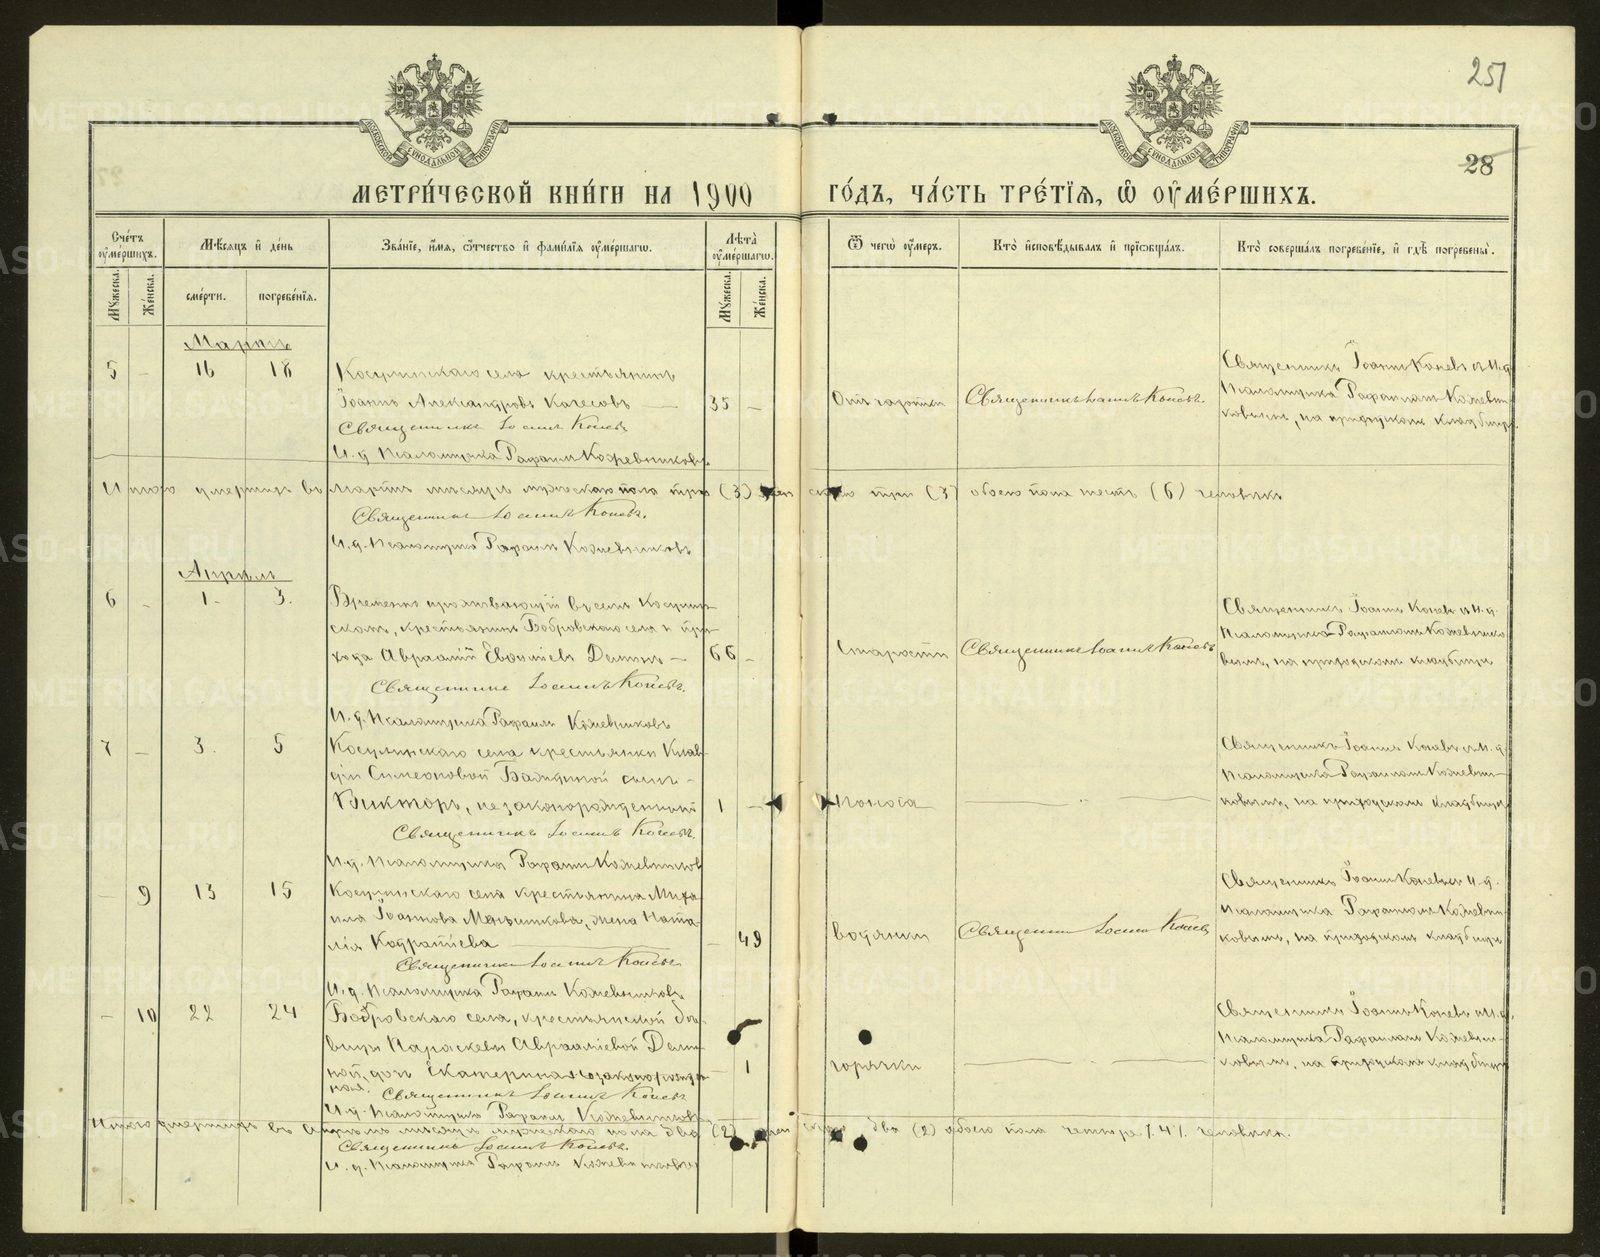 251
28
МЕТРИ́ЧЕСКОЙ КНИ́ГИ НА 1900 ГО́ДЪ, ЧА́СТЬ ТРЕ́ТІЯ, Ѽ ОУМЕ́РШИХЪ.
Сче́тъ оуме́ршихъ.
Мꙋжеска.
Же́нска.
Мѣ́сяцъ и де́нь
сме́рти.
погребе́нія.
Зва́ніе, и́мя, о́тчество и фами́лія оуме́ршагѡ.
Лѣта̀ оуме́ршагѡ.
Мꙋжеска.
Же́нска.
Ѿ чегѡ̀ оу́меръ.
Кто̀ исповѣ́дывалъ и пріѡбща́лъ.
Кто̀ соверша́лъ погребе́ніе, и гдѣ̀ погребены̀.
Мартъ
5 - 16 18
Косулинскаго села крестьянинъ
Іоаннъ Александровъ Качесовъ
35 -
Отъ горячки
Священникъ Іоаннъ Коневъ.
Священникъ Іоаннъ Коневъ
И. д. Псаломщика Рафаилъ Кожевниковъ
Священникъ Іоаннъ Коневъ съ И. д.
Псаломщика Рафаиломъ Кожевни-
ковымъ, на приходскомъ кладбищѣ.
Итого умершихъ въ мартѣ мѣсяцѣ мужескаго пола три (3) женскаго три (3) обоего пола шесть (6) человѣкъ
Священникъ Іоаннъ Коневъ.
И. д. Псаломщика Рафаилъ Кожевниковъ
Апрѣль
6 - 1. 3.
Временно проживающій въ селѣ Косулин-
скомъ, крестьянинъ Бобровскаго села и при-
хода Авраамій Евѳиміевъ Деминъ -
66 -
Старости
Священникъ Іоаннъ Коневъ
Священникъ Іоаннъ Коневъ.
И. д. Псаломщика Рафаилъ Кожевниковъ
Священникъ Іоаннъ Коневъ съ И. д.
Псаломщика Рафаиломъ Кожевнико-
вымъ, на приходскомъ кладбищѣ
7 - 3. 5
Косулинскаго села крестьянки Клав-
діи Симеоновой сынъ -
Викторъ, незаконорожденный
1 -
поноса
Священникъ Іоаннъ Коневъ.
И. д. Псаломщика Рафаилъ Кожевниковъ
Священникъ Іоаннъ Коневъ съ И. д.
Псаломщика Рафаиломъ Кожевни-
ковымъ, на приходскомъ кладбищѣ
- 9 13 15
Косулинскаго села крестьянина Миха-
ила Іоаннова Меньшикова, жена Ната-
лія Кодратіева
- 49
водянки
Священникъ Іоаннъ Коневъ
Священникъ Іоаннъ Коневъ
И. д. Псаломщика Рафаилъ Кожевниковъ
Священникъ Іоаннъ Коневъ съ И. д.
Псаломщика Рафаиломъ Кожевни-
ковымъ, на приходскомъ кладбищѣ
- 10 22 24
Бобровскаго села, крестьянской дѣ-
вицы Параскевы Авраамievой Деми-
ной дочь Екатерина
- 1
горячки
Священникъ Іоаннъ Коневъ
И. д. Псаломщика Рафаилъ Кожевниковъ
Священникъ Іоаннъ Коневъ съ И. д.
Псаломщика Рафаиломъ Кожевни-
ковымъ, на приходскомъ кладбищѣ
Итого умершихъ въ Апрѣлѣ мѣсяцѣ мужескаго пола два (2) женскаго два (2) обоего пола четыре /4/ человѣка.
Священникъ Іоаннъ Коневъ.
И. д. Псаломщика Рафаилъ Кожевниковъ
METRIKI.GASO-URAL.RU